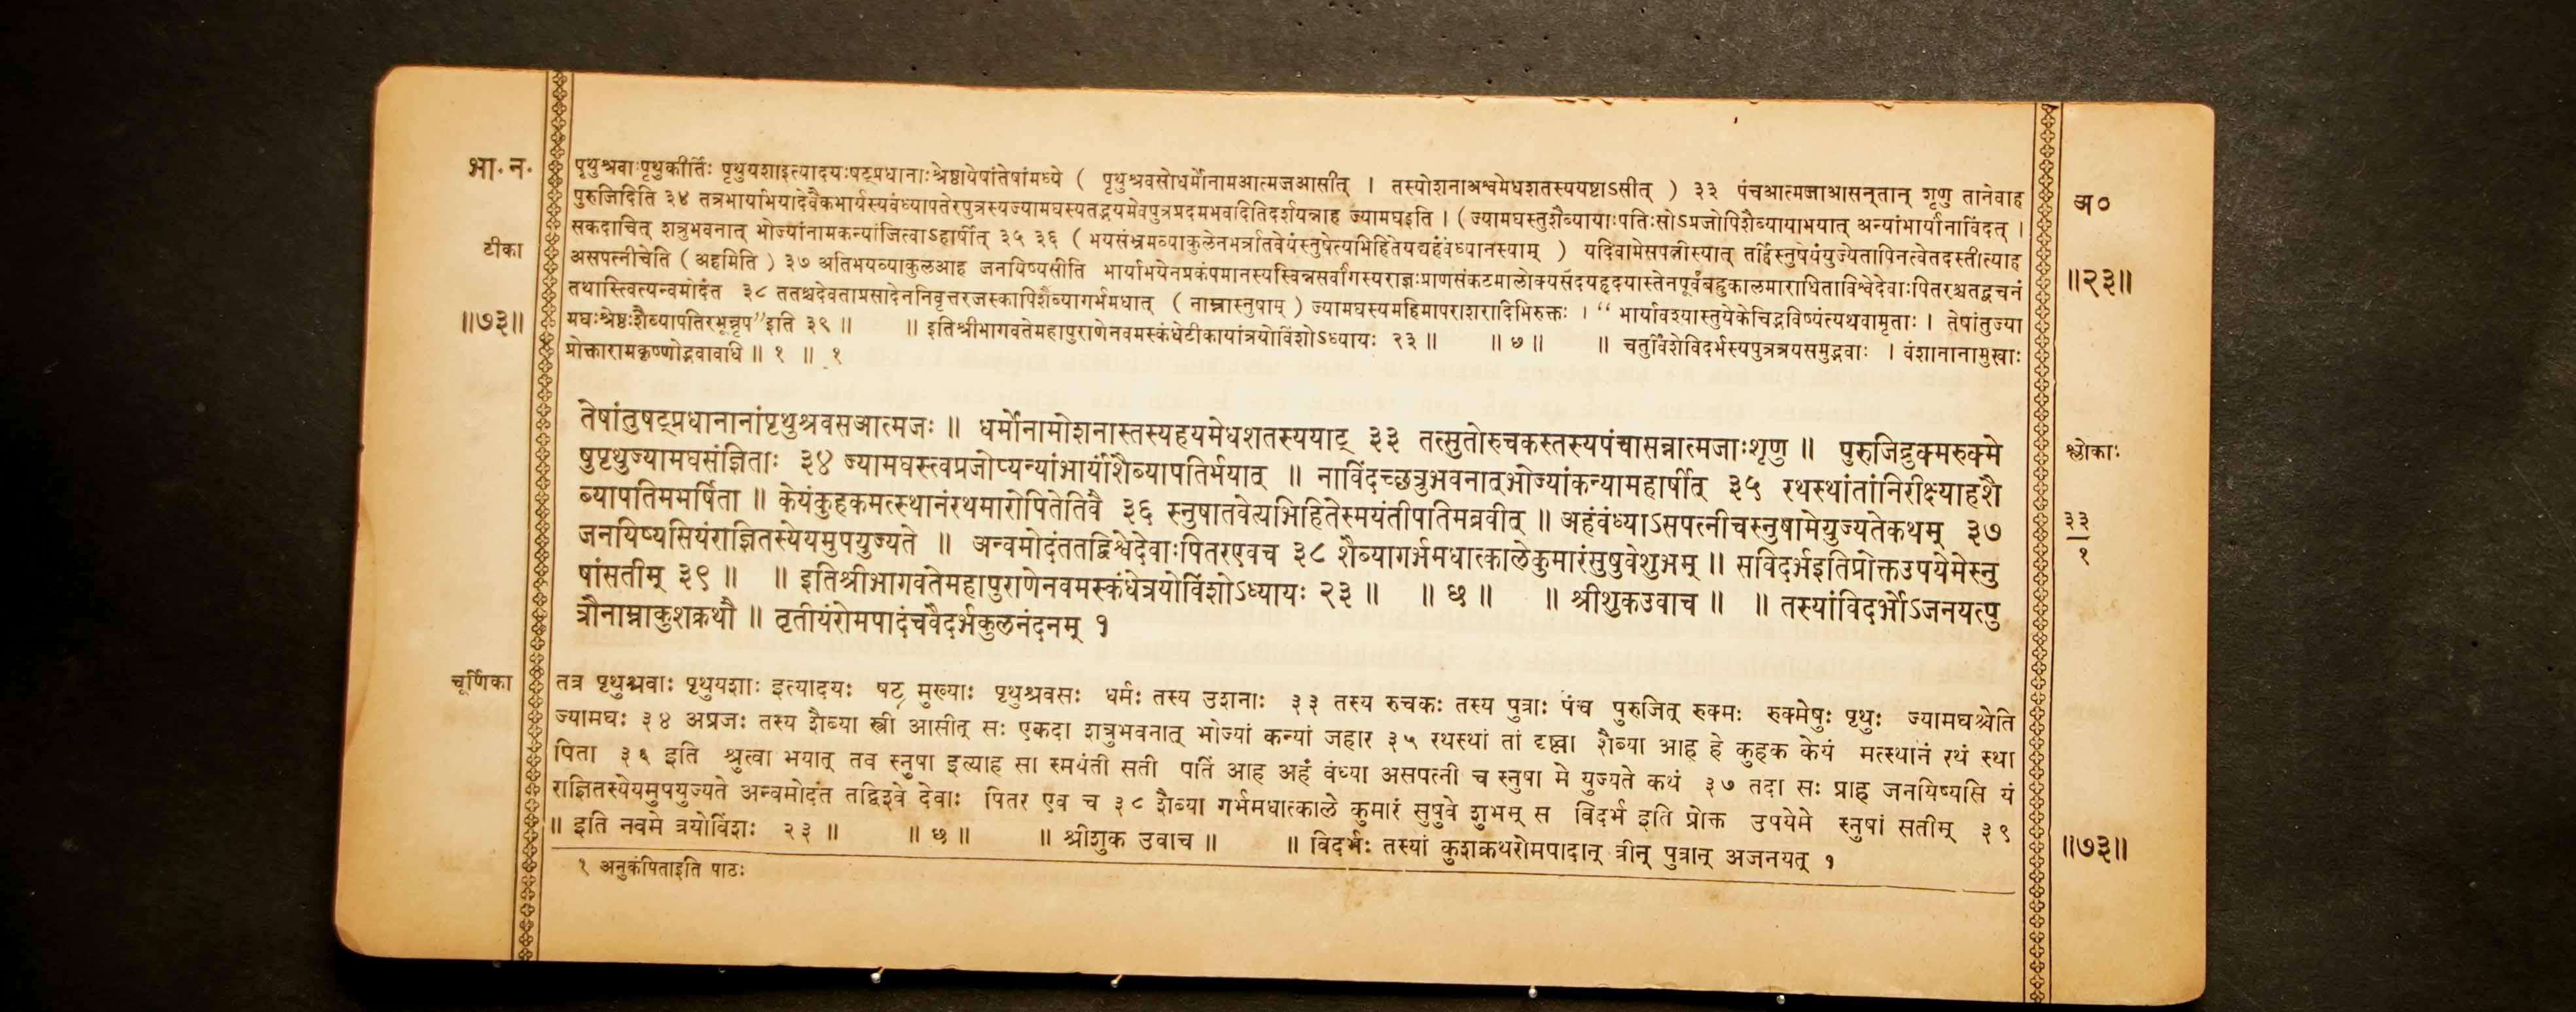 भा. न.
पृथुश्रवाःपृथुकीर्तिः पृथुयशाइत्यादयःषट्प्रधानाःश्रेष्ठायेषांतेषांमध्ये ( पृथुश्रवसोधर्मोनामआत्मजआसीत् । तस्योशनाअश्वमेधशतस्ययष्टाऽसीत् ) ३३ पंचआत्मजाआसन्तान् शृणु तानेवाह
अ०
पुरुजिदिति ३४ तत्रभार्याभयादेवैकभार्यस्यवंध्यापतेरपुत्रस्यज्यामघस्यतद्भयमेवपुत्रप्रदमभवदितिदर्शयन्नाह ज्यामघइति । ( ज्यामघस्तुशैब्यायाःपतिःसोऽप्रजोपिशैब्यायाभयात् अन्यांभार्यांनाविंदत् ।
सकदाचित् शत्रुभवनात् भोज्यांनामकन्यांजित्वाऽहार्षीत् ३५ ३६ ( भयसंभ्रमव्याकुलेनभर्त्रातवेयंस्नुषेत्यभिहितेयद्यहंवंध्यानस्याम् ) यदिवामेसपत्नीस्यात् तर्हिस्नुषेयंयुज्येतापिनत्वेतदस्तीत्याह
टीका
असपत्नीचेति ( अहमिति ) ३७ अतिभयव्याकुलआह जनयिष्यसीति भार्याभयेनप्रकंपमानस्यस्विन्नसर्वांगस्यराज्ञःप्राणसंकटमालोक्यसदयहृदयास्तेनपूर्वंबहुकालमाराधिताविश्वेदेवाःपितरश्चतद्वचनं
॥२३॥
तथास्त्वित्यन्वमोदंत ३८ ततश्चदेवताप्रसादेननिवृत्तरजस्कापिशैब्यागर्भमधात् ( नाम्नास्नुषाम् ) ज्यामघस्यमहिमापराशरादिभिरुक्तः । “ भार्यावश्यास्तुयेकेचिद्भविष्यंत्यथवामृताः । तेषांतुज्या
॥७३॥
मघःश्रेष्ठःशैब्यापतिरभून्नृप”इति ३९ ॥ ॥ इतिश्रीभागवतेमहापुराणेनवमस्कंधेटीकायांत्रयोविंशोऽध्यायः २३ ॥ ॥ ७ ॥ ॥ चतुर्विंशेविदर्भस्यपुत्रत्रयसमुद्भवाः । वंशानानामुखाः
प्रोक्तारामकृष्णोद्भवावधि ॥ १ ॥ १
तेषांतुषट्प्रधानानांपृथुश्रवसआत्मजः ॥ धर्मोनामोशनास्तस्यहयमेधशतस्ययाट् ३३ तत्सुतोरुचकस्तस्यपंचासन्नात्मजाःशृणु ॥ पुरुजिद्रुक्मरुक्मे
श्लोकाः
षुपृथुज्यामघसंज्ञिताः ३४ ज्यामघस्त्वप्रजोप्यन्यांभार्यांशैब्यापतिर्भयात् ॥ नाविंदच्छत्रुभवनात्भोज्यांकन्यामहार्षीत् ३५ रथस्थांतांनिरीक्ष्याहशै
ब्यापतिममर्षिता ॥ केयंकुहकमत्स्थानंरथमारोपितेतिवै ३६ स्नुषातवेत्यभिहितेस्मयंतीपतिमब्रवीत् ॥ अहंवंध्याऽसपत्नीचस्नुषामेयुज्यतेकथम् ३७
३३
१
जनयिष्यसियंराज्ञितस्येयमुपयुज्यते ॥ अन्वमोदंततद्विश्वेदेवाःपितरएवच ३८ शैब्यागर्भमधात्कालेकुमारंसुषुवेशुभम् ॥ सविदर्भइतिप्रोक्तउपयेमेस्नु
षांसतीम् ३९ ॥ ॥ इतिश्रीभागवतेमहापुराणेनवमस्कंधेत्रयोविंशोऽध्यायः २३ ॥ ॥ छ ॥ ॥ श्रीशुकउवाच ॥ ॥ तस्यांविदर्भोऽजनयत्पु
त्रौनाम्नाकुशक्रथौ ॥ तृतीयंरोमपादंचवैदर्भकुलनंदनम् १
चूर्णिका
तत्र पृथुश्रवाः पृथुयशाः इत्यादयः षट् मुख्याः पृथुश्रवसः धर्मः तस्य उशनाः ३३ तस्य रुचकः तस्य पुत्राः पंच पुरुजित् रुक्मः रुक्मेषुः पृथुः ज्यामघश्चेति
ज्यामघः ३४ अप्रजः तस्य शैब्या स्त्री आसीत् सः एकदा शत्रुभवनात् भोज्यां कन्यां जहार ३५ रथस्थां तां दृष्ट्वा शैब्या आह हे कुहक केयं मत्स्थानं रथं स्था
पिता ३६ इति श्रुत्वा भयात् तव स्नुषा इत्याह सा स्मयंती सती पतिं आह अहं वंध्या असपत्नी च स्नुषा मे युज्यते कथं ३७ तदा सः प्राह जनयिष्यसि यं
राज्ञितस्येयमुपयुज्यते अन्वमोदंत तद्विश्वे देवाः पितर एव च ३८ शैब्या गर्भमधात्काले कुमारं सुषुवे शुभम् स विदर्भ इति प्रोक्त उपयेमे स्नुषां सतीम् ३९
॥ इति नवमे त्रयोविंशः २३ ॥ ॥ छ ॥ ॥ श्रीशुक उवाच ॥ ॥ विदर्भः तस्यां कुशक्रथरोमपादान् त्रीन् पुत्रान् अजनयत् १
॥७३॥
१ अनुकंपिताइति पाठः